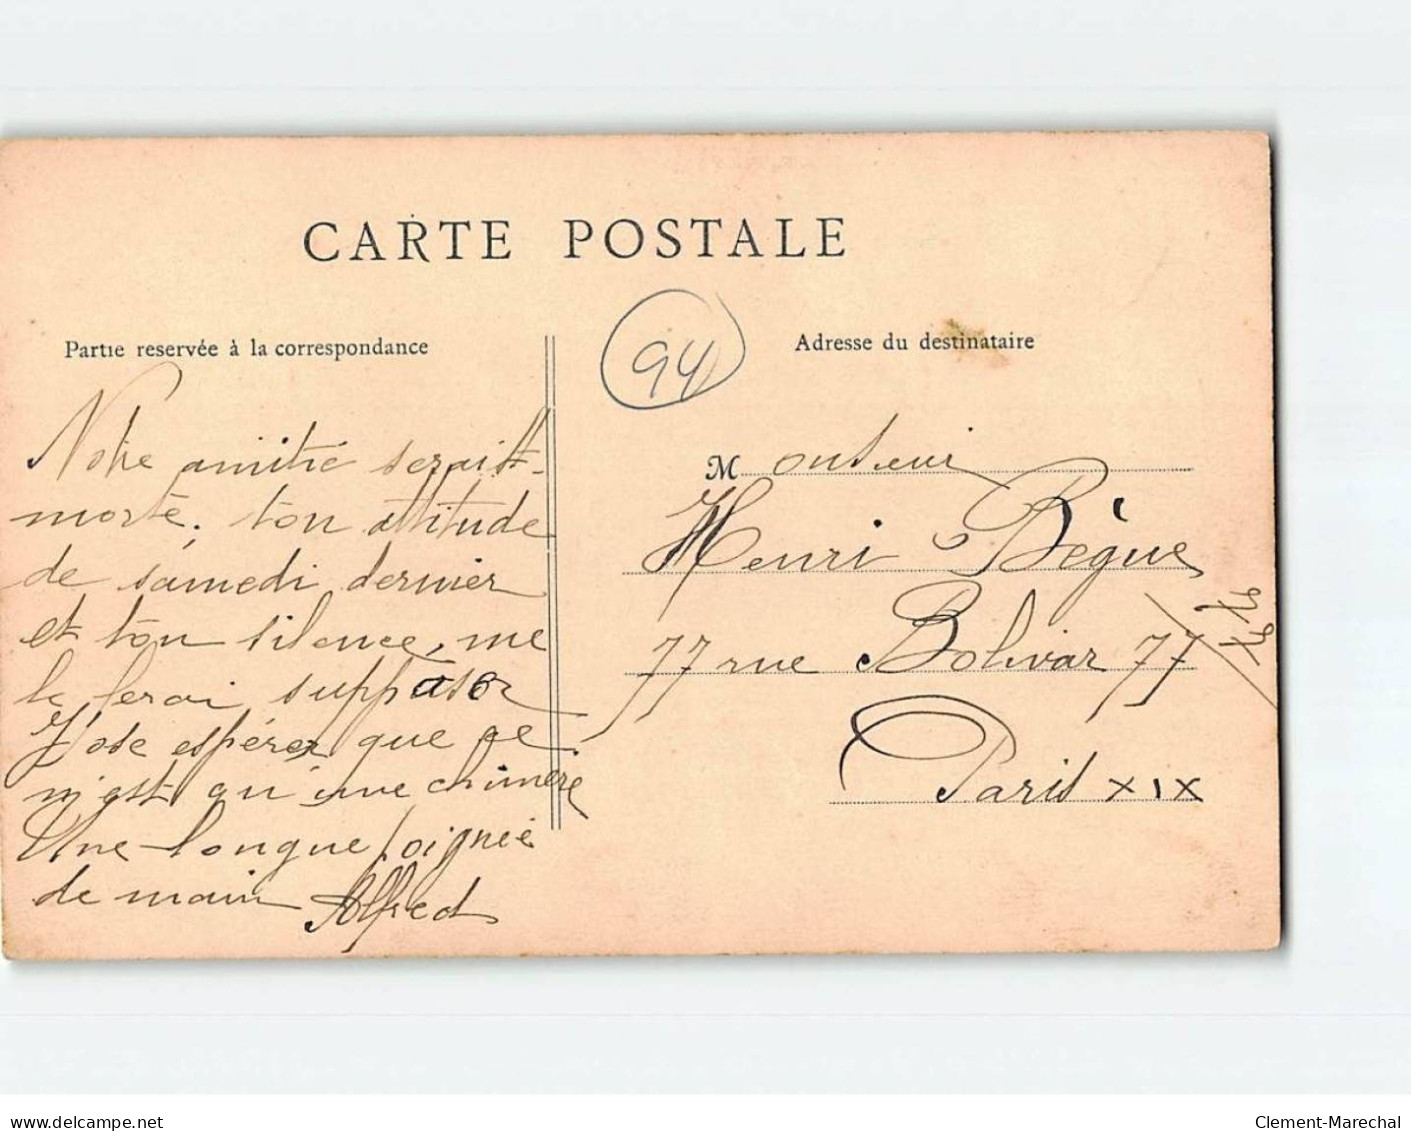 CARTE POSTALE
Partie reservée à la correspondance
94
Adresse du destinataire
Notre amitié serait
morte. ton attitude
de samedi dernier
et ton silence, me
le ferai supposer
J'ose espérer que ce
n'est qu'une chimère
Une longue poignée
de main Alfred
Monsieur
Henri Bègue
77 rue Bolivar 77
Paris XIX
delcampe.net
Clement-Marechal